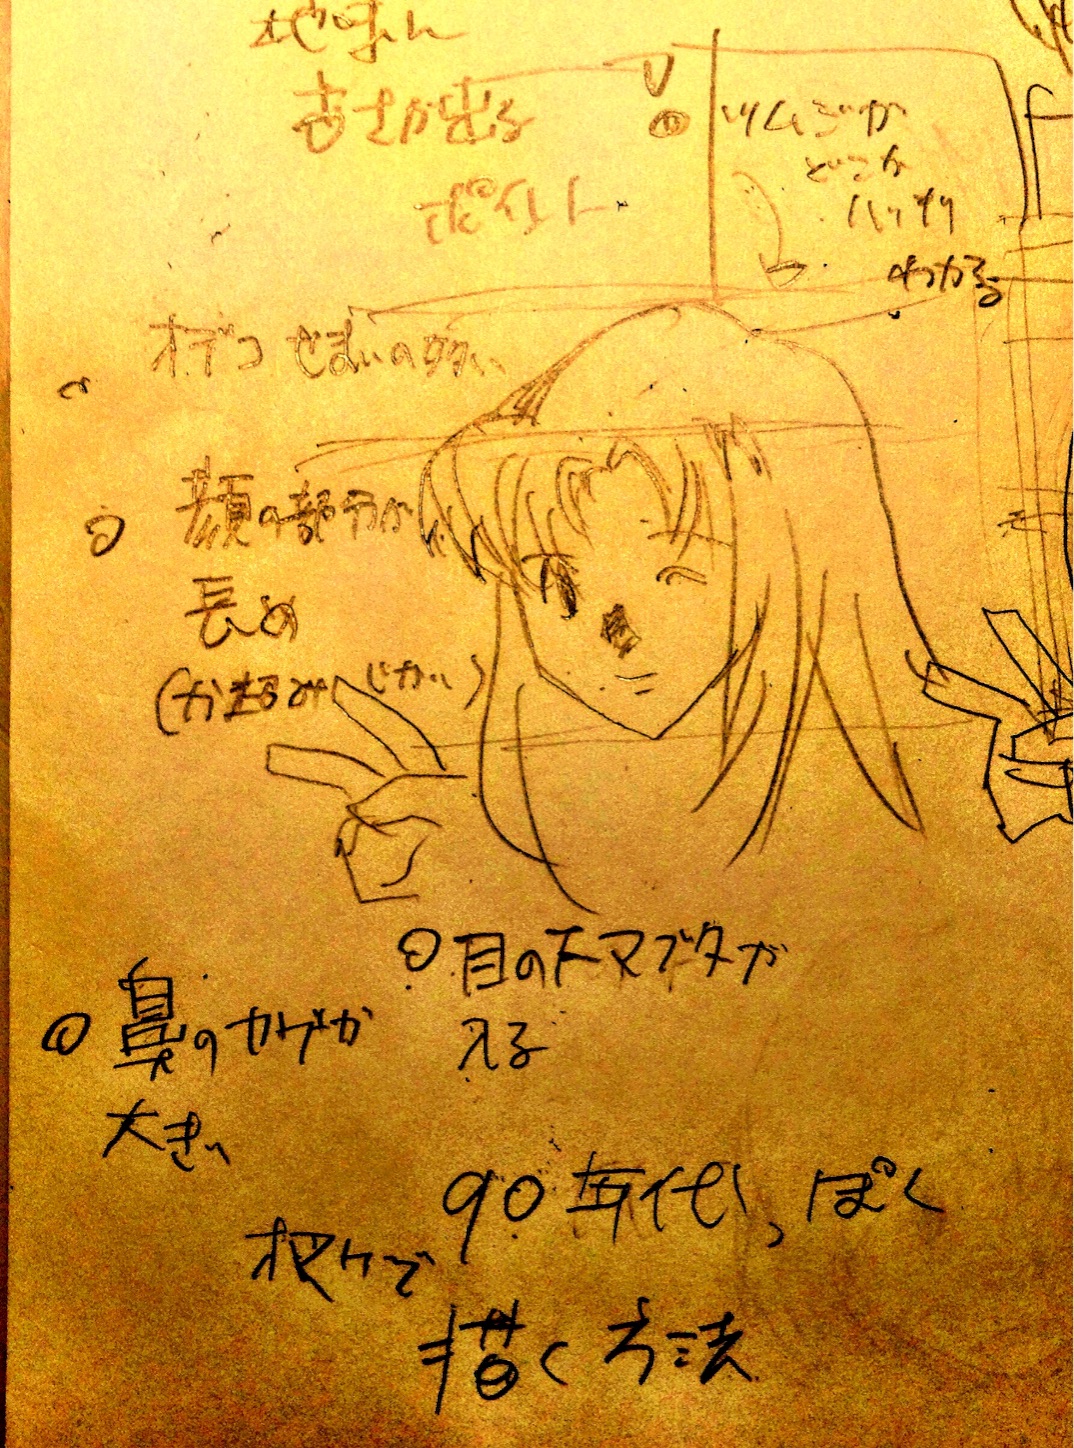 地味に
古さが出る
ポイント
ツムジが
どこか
ハッキリ
わかる
オデコせまいの多い
顔の部分が
長め
(かみ みじかい)
目の下マブタが
入る
鼻のカゲが
大きい
90年代っぽく
オマケで
描く方法